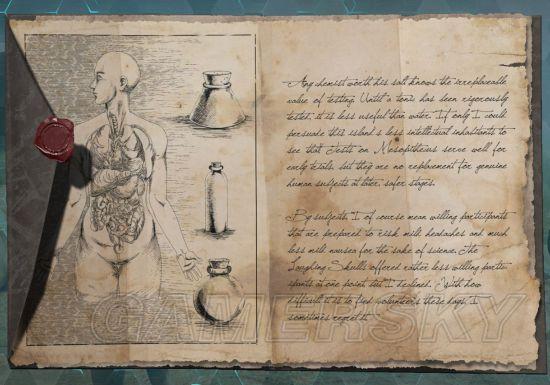 Any chemist worth his salt knows the irreplaceable
value of testing. Until a tonic has been rigorously
tested, it is less useful than water. If only I could
persuade this island's less intellectual inhabitants to
see that. Tests on Mesopithecus serve well for
early trials, but they are no replacement for genuine
human subjects at later, safer stages.
By subjects, I of course mean willing participants
that are prepared to risk mild headaches and much
less mild nausea for the sake of science. The
Laughing Skulls offered rather less willing partici-
pants at one point, but I declined. With how
difficult it is to find volunteers these days, I
sometimes regret it.
GAMERSKY